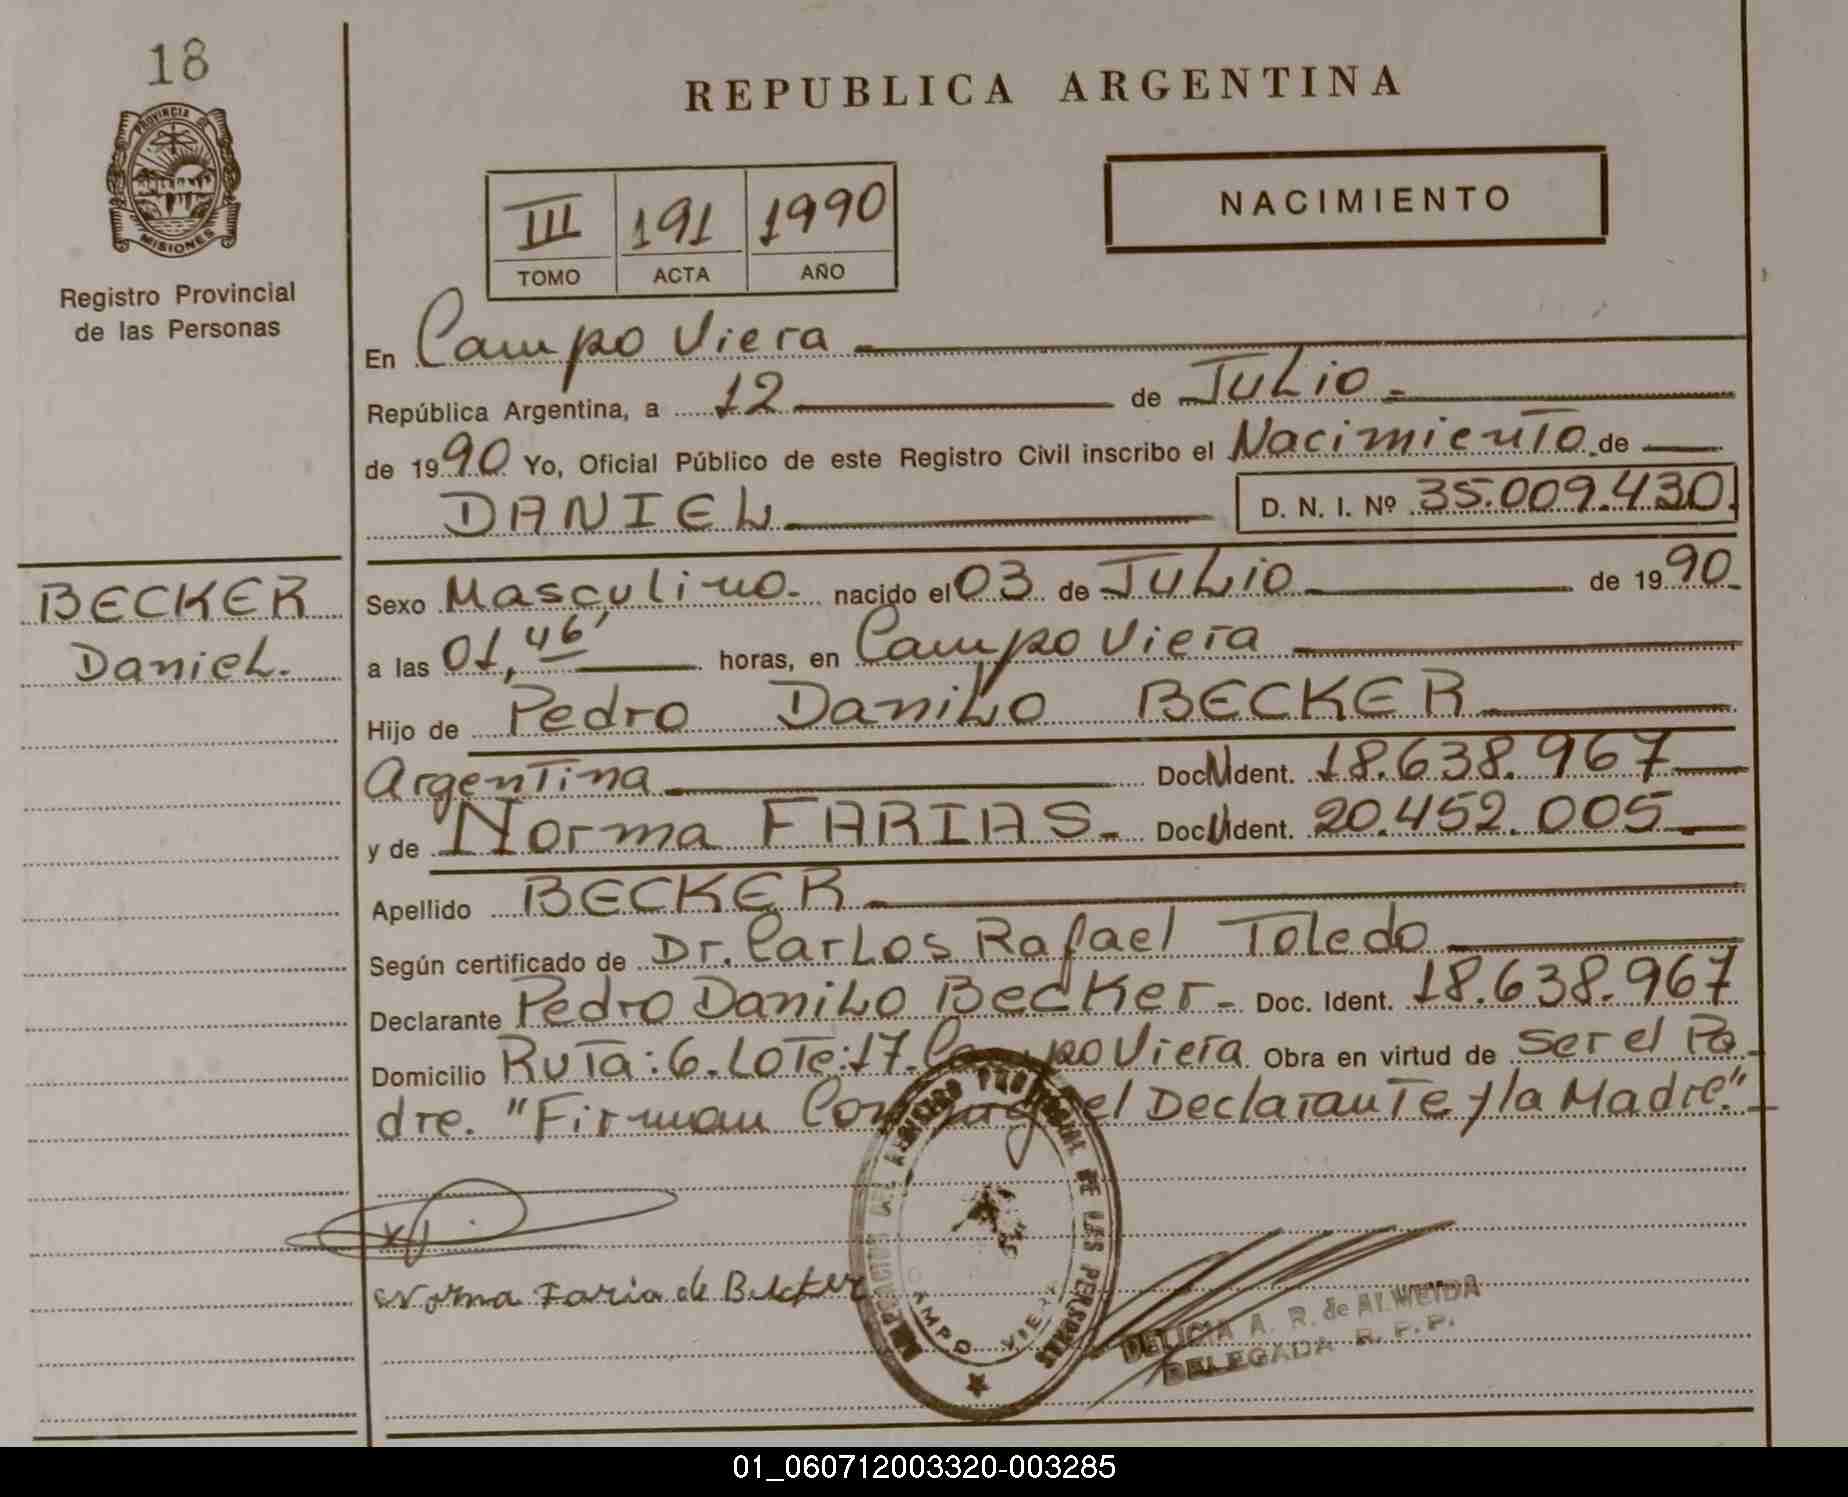 18
PROVINCIA DE
MISIONES
Registro Provincial
de las Personas
REPUBLICA ARGENTINA
III 191 1990
TOMO ACTA AÑO
NACIMIENTO
En Campo Viera
República Argentina, a 12 de Julio
de 1990 Yo, Oficial Público de este Registro Civil inscribo el Nacimiento de
DANIEL D. N. I. Nº 35.009.430
BECKER
Daniel.
Sexo Masculino. nacido el 03 de Julio de 1990
a las 01,46' horas, en Campo Viera
Hijo de Pedro Danilo BECKER
Argentina Doc. Ident. 18.638.967
y de Norma FARIAS Doc. Ident. 20.452.005
Apellido BECKER
Según certificado de Dr. Carlos Rafael Toledo
Declarante Pedro Danilo Becker Doc. Ident. 18.638.967
Domicilio Ruta: 6. Lote: 17. Campo Viera Obra en virtud de ser el Pa
dre. "Firman Conmigo el Declarante y la Madre."
Norma Faria de Becker
REGISTRO PROVINCIAL DE LAS PERSONAS
CAMPO VIERA
DELICIA A. R. de ALMEIDA
DELEGADA R. P. P.
01_060712003320-003285